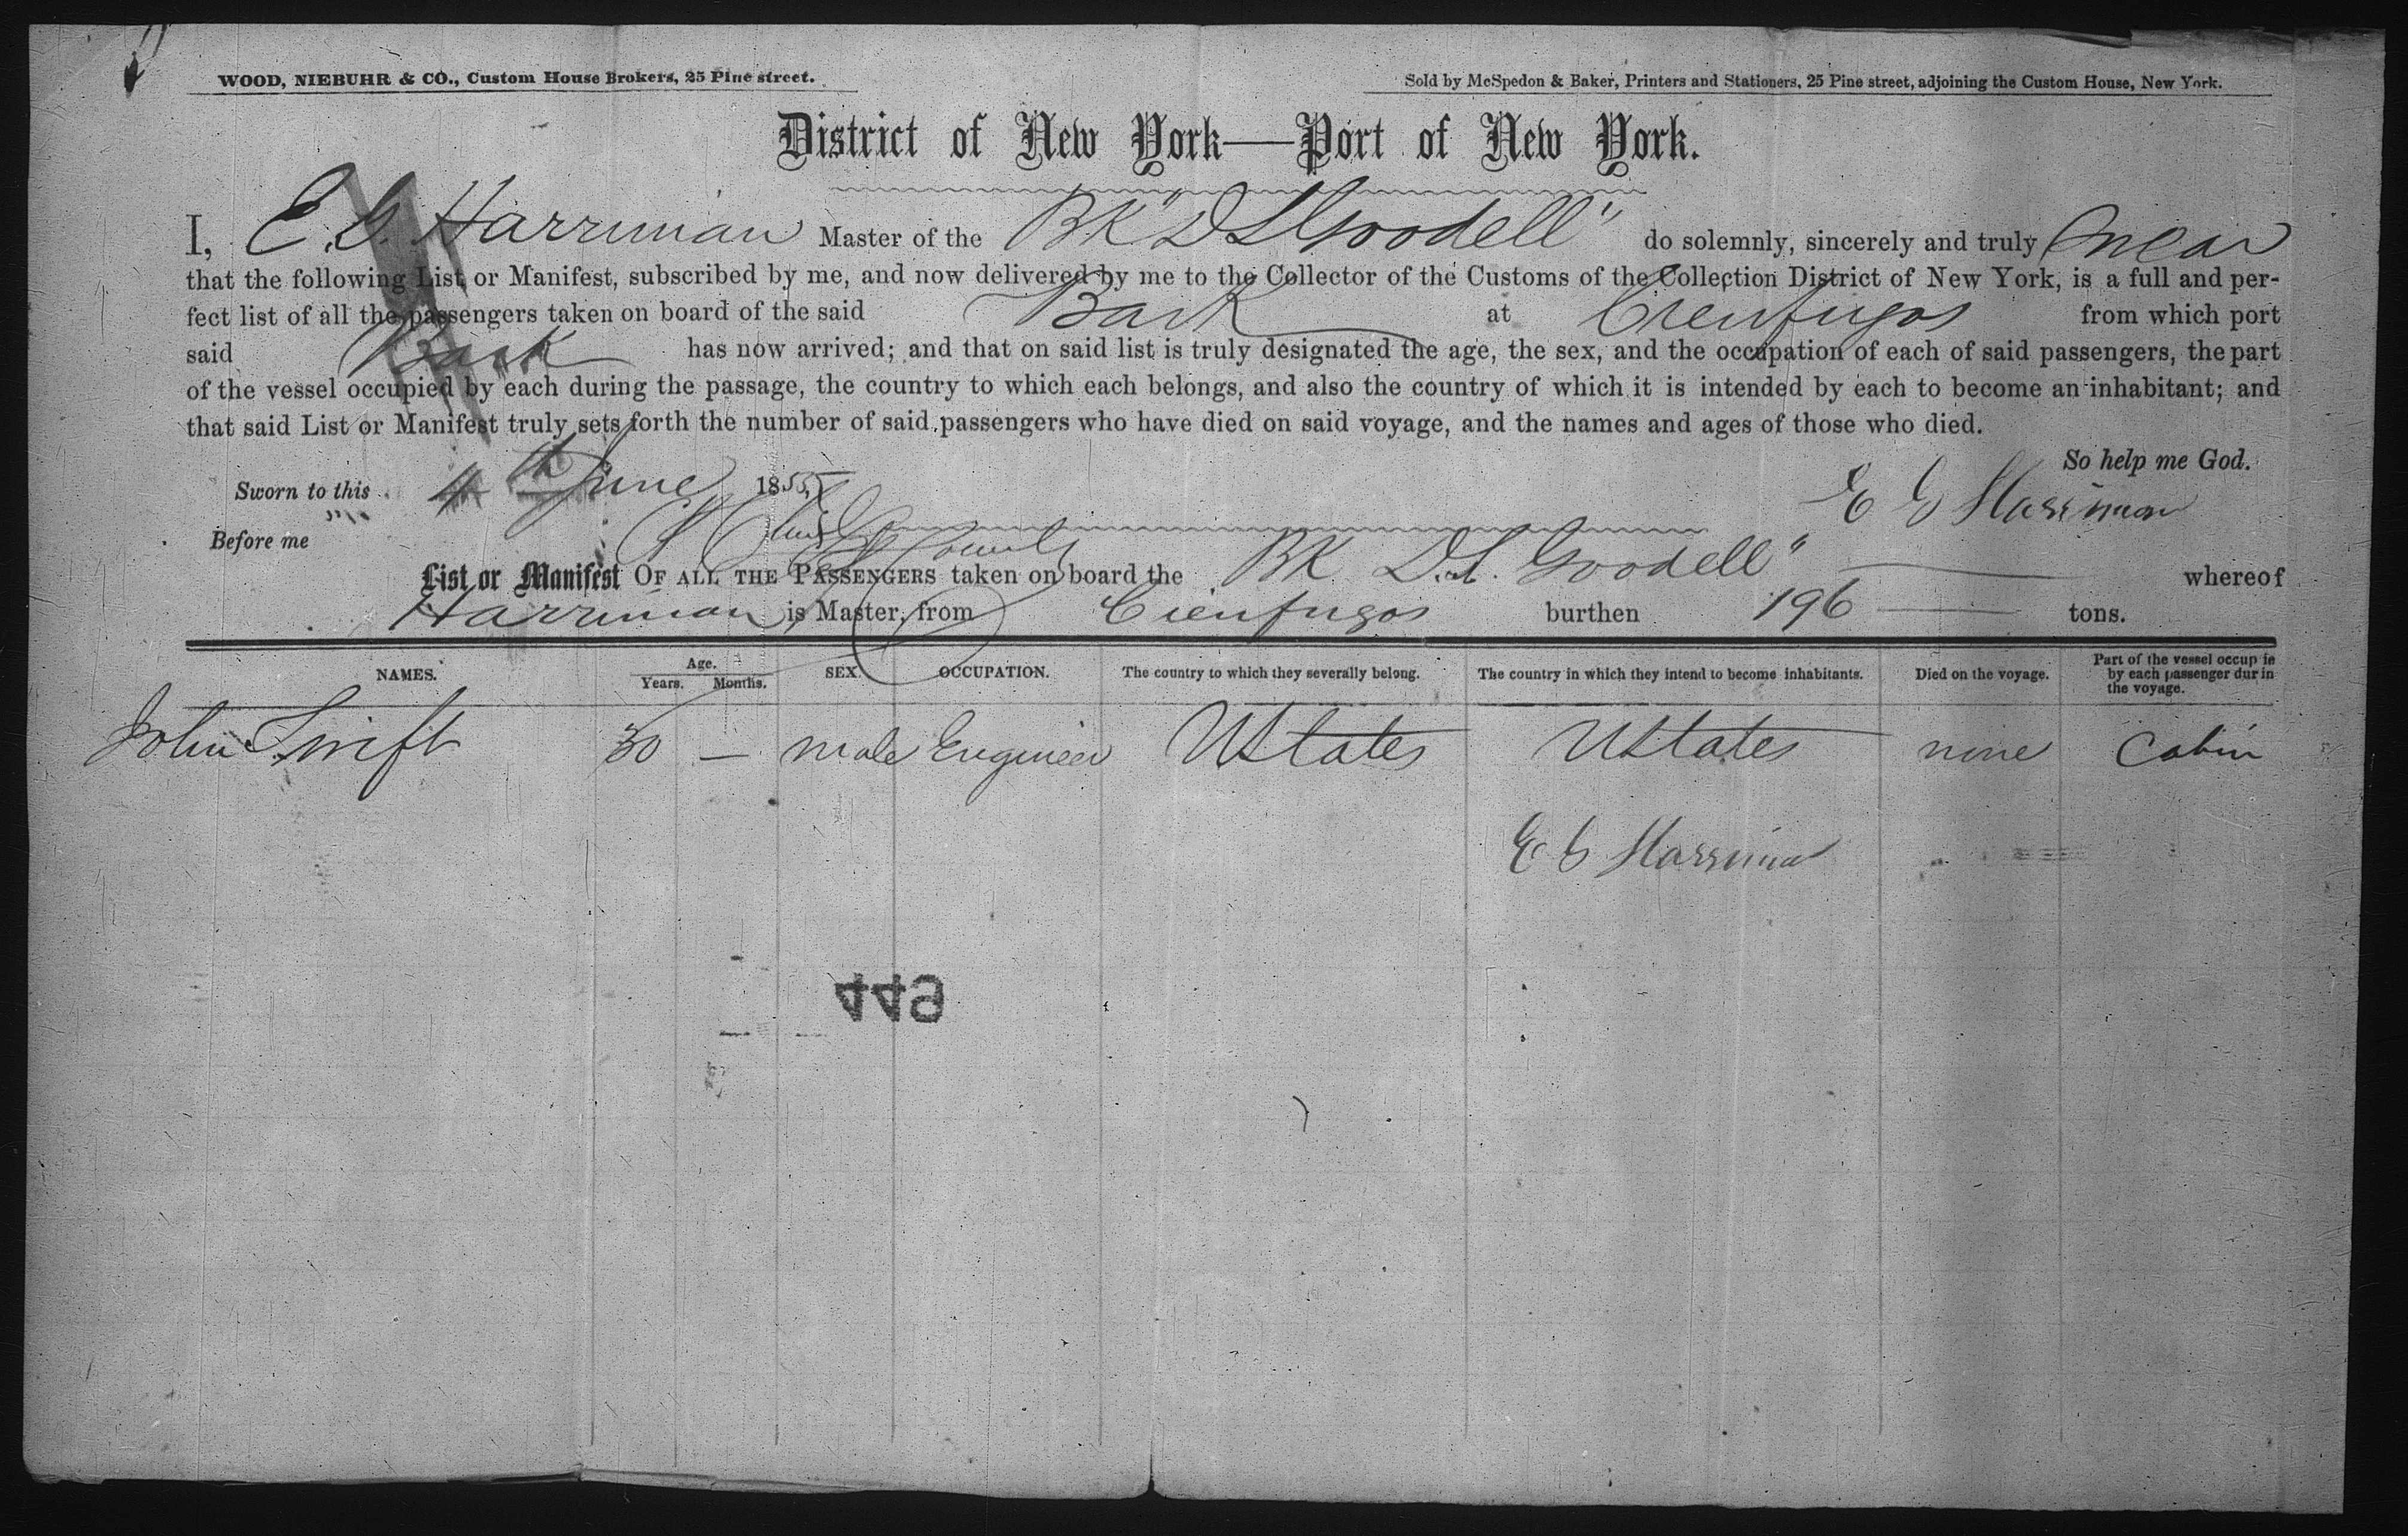 WOOD, NIEBUHR & CO., Custom House Brokers, 25 Pine street.
Sold by McSpedon & Baker, Printers and Stationers, 25 Pine street, adjoining the Custom House, New York.
District of New York—Port of New York.
I, E. G. Harriman Master of the BK "D S Goodell" do solemnly, sincerely and truly swear
that the following List or Manifest, subscribed by me, and now delivered by me to the Collector of the Customs of the Collection District of New York, is a full and per-
fect list of all the passengers taken on board of the said Bark at Cienfugos from which port
said Bark has now arrived; and that on said list is truly designated the age, the sex, and the occupation of each of said passengers, the part
of the vessel occupied by each during the passage, the country to which each belongs, and also the country of which it is intended by each to become an inhabitant; and
that said List or Manifest truly sets forth the number of said passengers who have died on said voyage, and the names and ages of those who died.
So help me God.
Sworn to this June 1855 E G Harriman
Before me
List or Manifest OF ALL THE PASSENGERS taken on board the BK D.S. Goodell" whereof
Harriman is Master, from Cienfugos burthen 196 tons.
NAMES. Age. Years. Months. SEX. OCCUPATION. The country to which they severally belong. The country in which they intend to become inhabitants. Died on the voyage. Part of the vessel occup ie by each passenger dur in the voyage.
John Swift 30 — male Engineer UStates UStates none Cabin
E G Harriman
449